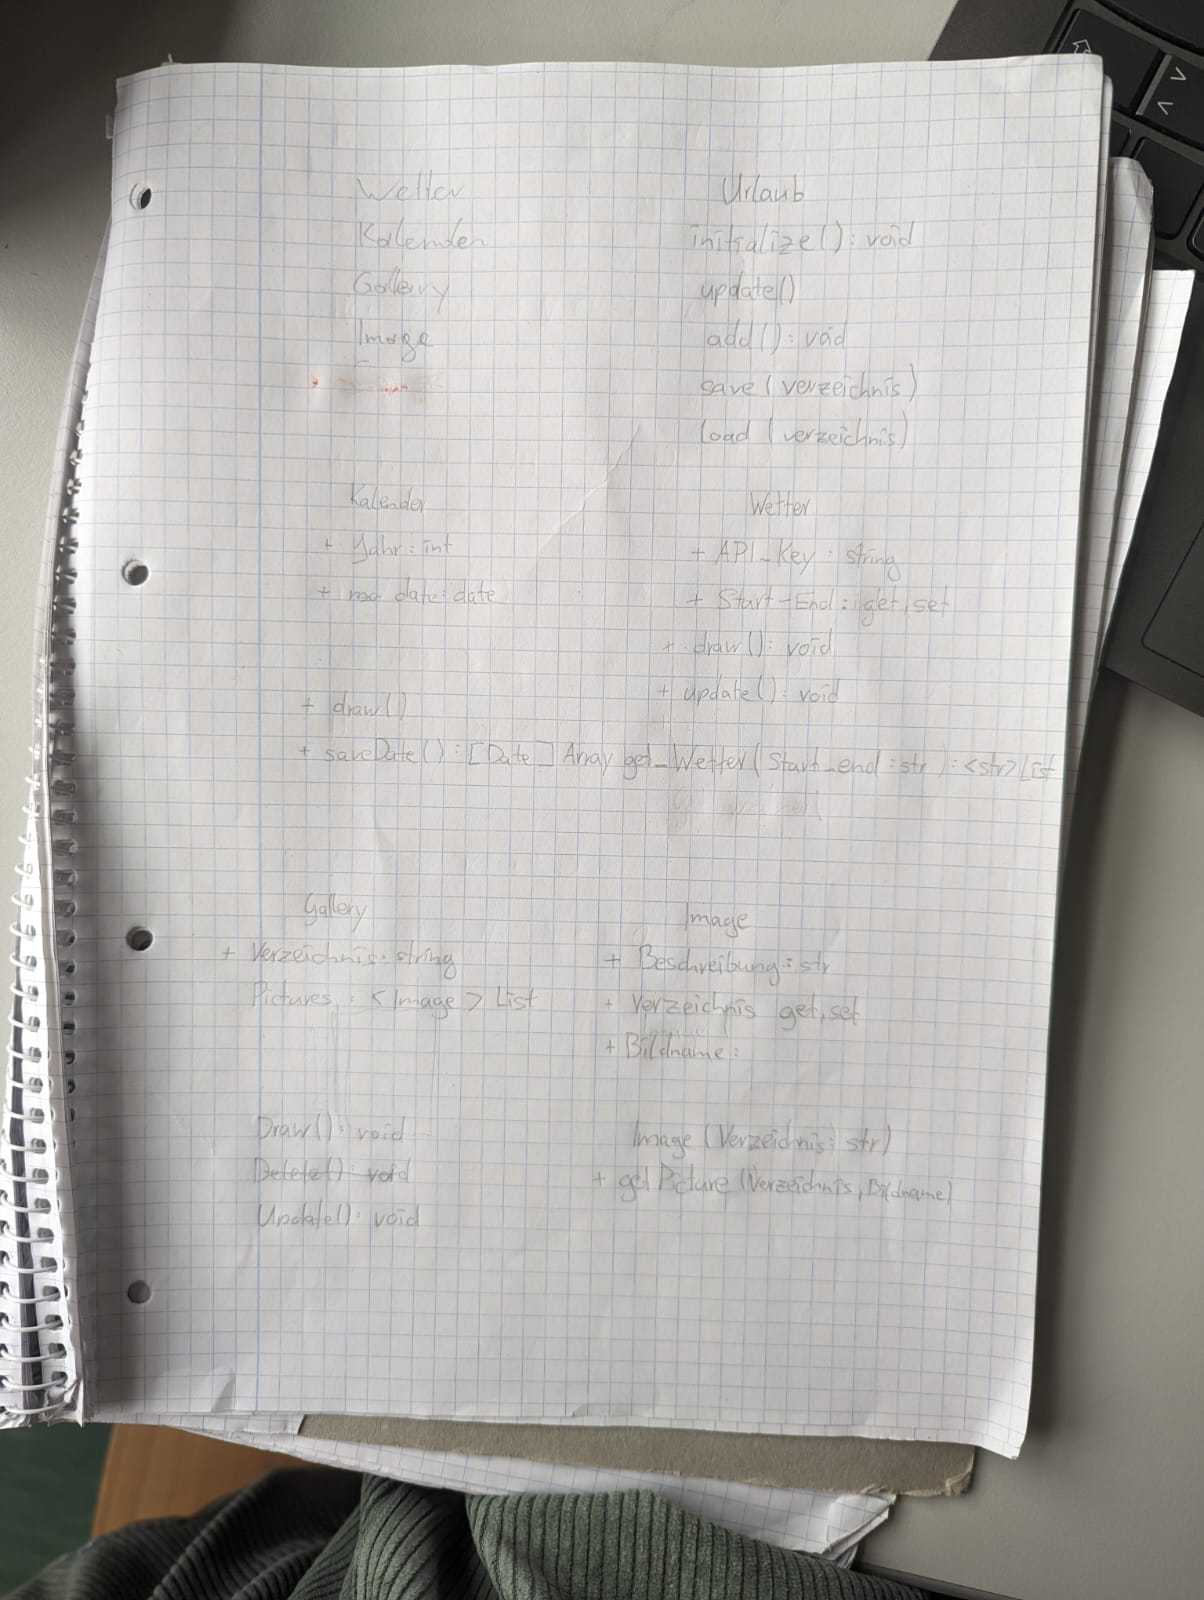 Wetter
Kalender
Gallery
Image
Urlaub
initialize(): void
update()
add(): void
save (verzeichnis)
load (verzeichnis)
Kalender
+ Jahr: int
+ date: date
+ draw()
+ saveDate(): [Date] Array
Wetter
+ API_Key: string
+ Start-End: get, set
+ draw(): void
+ update(): void
get_Wetter (Start_end: str): <str> List
Gallery
+ Verzeichnis: string
Pictures: <Image> List
Draw(): void
Delete(): void
Update(): void
Image
+ Beschreibung: str
+ Verzeichnis get, set
+ Bildname:
Image (Verzeichnis: str)
+ getPicture (Verzeichnis, Bildname)